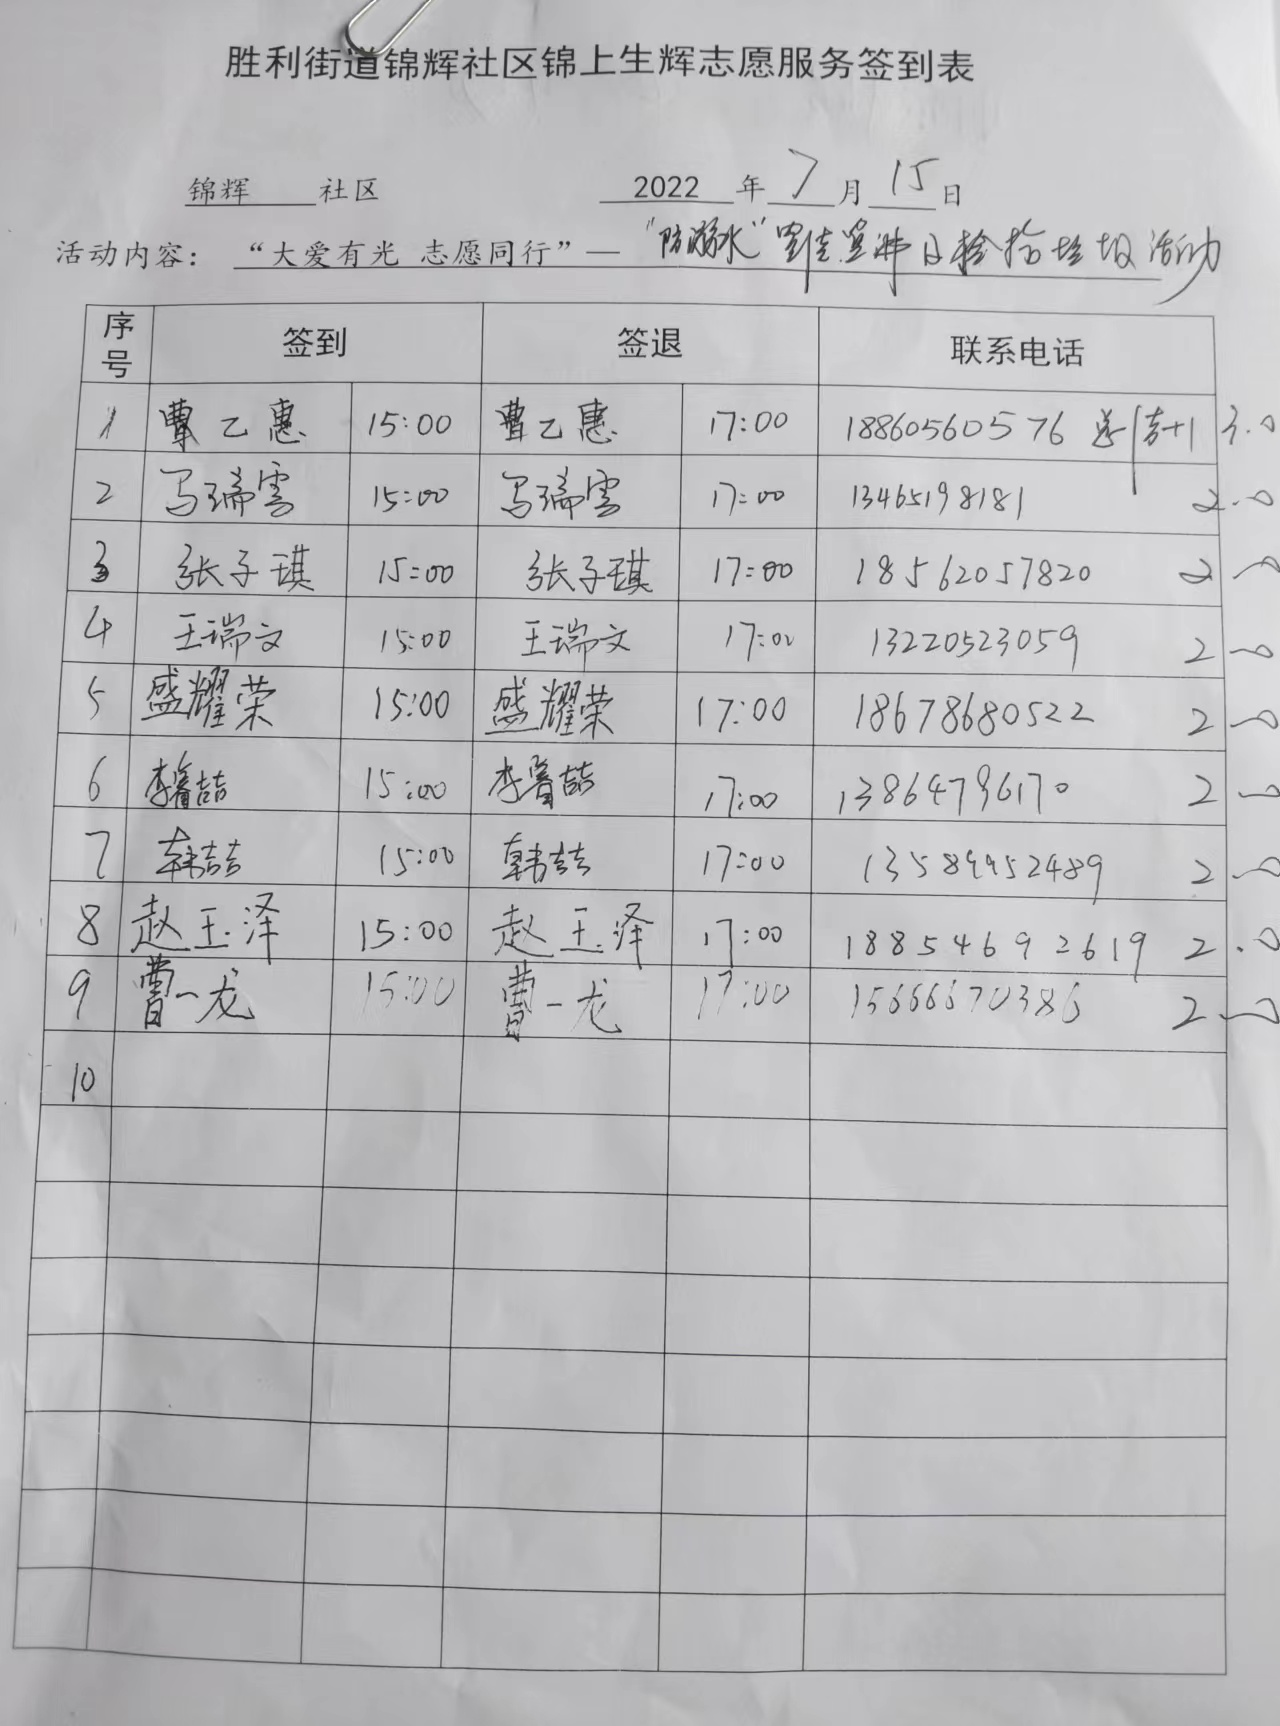 胜利街道锦辉社区锦上生辉志愿服务签到表
锦辉 社区 2022 年 7 月 15 日
活动内容： “大爱有光 志愿同行”— “防溺水” 日捡拾垃圾活动
序号 签到 签退 联系电话
1 曹乙惠 15:00 曹乙惠 17:00 18860560576 +1 3.0
2 马瑞雪 15:00 马瑞雪 17:00 13465198181 2.0
3 张子琪 15:00 张子琪 17:00 18562057820 2.0
4 王瑞文 15:00 王瑞文 17:00 13220523059 2.0
5 盛耀荣 15:00 盛耀荣 17:00 18678680522 2.0
6 李睿喆 15:00 李睿喆 17:00 13864796170 2.0
7 韩喆 15:00 韩喆 17:00 13589952489 2.0
8 赵玉泽 15:00 赵玉泽 17:00 18854692619 2.0
9 曹一龙 15:00 曹一龙 17:00 15666670386 2.0
10